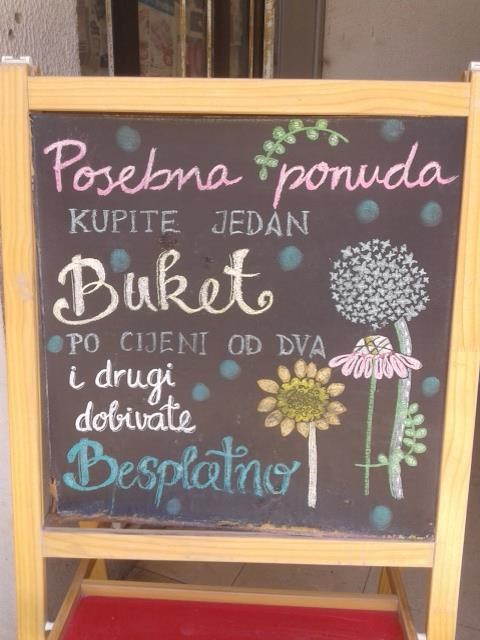 Posebna ponuda
KUPITE JEDAN
Buket
PO CIJENI OD DVA
i drugi
dobivate
Besplatno